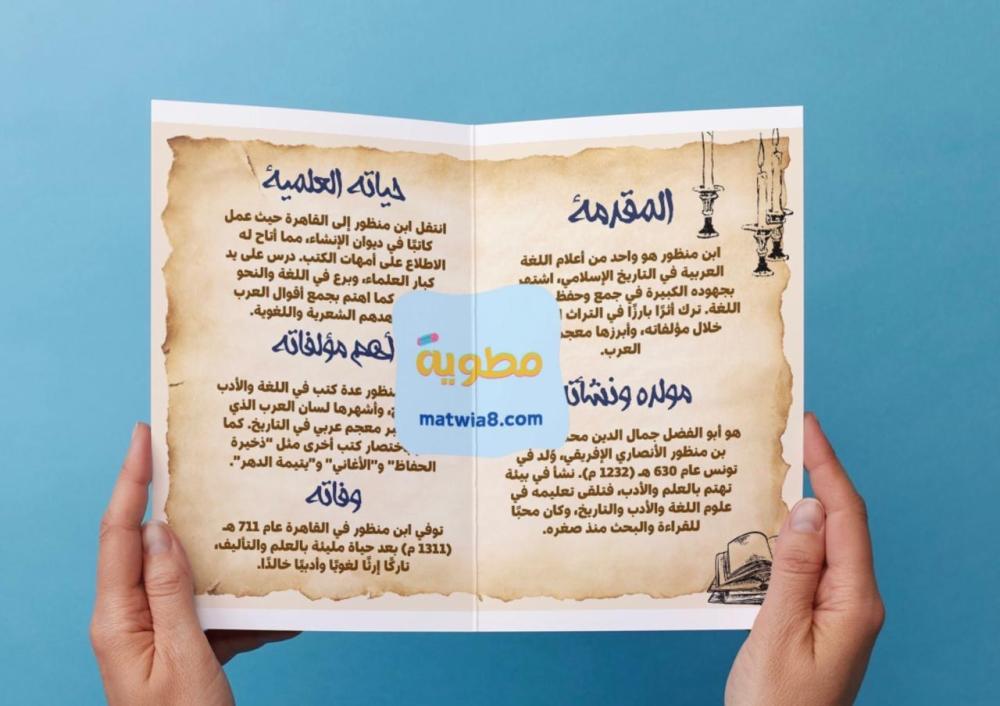 المقدمة
ابن منظور هو واحد من أعلام اللغة
العربية في التاريخ الإسلامي، اشتهر
بجهوده الكبيرة في جمع وحفظ
اللغة. ترك أثرًا بارزًا في التراث
خلال مؤلفاته، وأبرزها معجم
العرب.
مولده ونشأته
هو أبو الفضل جمال الدين
بن منظور الأنصاري الإفريقي، وُلد في
تونس عام 630 هـ (1232 م). نشأ في بيئة
تهتم بالعلم والأدب، فتلقى تعليمه في
علوم اللغة والأدب والتاريخ، وكان محبًا
للقراءة والبحث منذ صغره.
حياته العلمية
انتقل ابن منظور إلى القاهرة حيث عمل
كاتبًا في ديوان الإنشاء، مما أتاح له
الاطلاع على أمهات الكتب. درس على يد
كبار العلماء، وبرع في اللغة والنحو
كما اهتم بجمع أقوال العرب
الشعرية واللغوية.
أهم مؤلفاته
منظور عدة كتب في اللغة والأدب
وأشهرها لسان العرب الذي
معجم عربي في التاريخ. كما
باختصار كتب أخرى مثل "ذخيرة
الحفاظ" و"الأغاني" و"يتيمة الدهر".
وفاته
توفي ابن منظور في القاهرة عام 711 هـ
(1311 م) بعد حياة مليئة بالعلم والتأليف،
تاركًا إرثًا لغويًا وأدبيًا خالدًا.
مطوية
matwia8.com